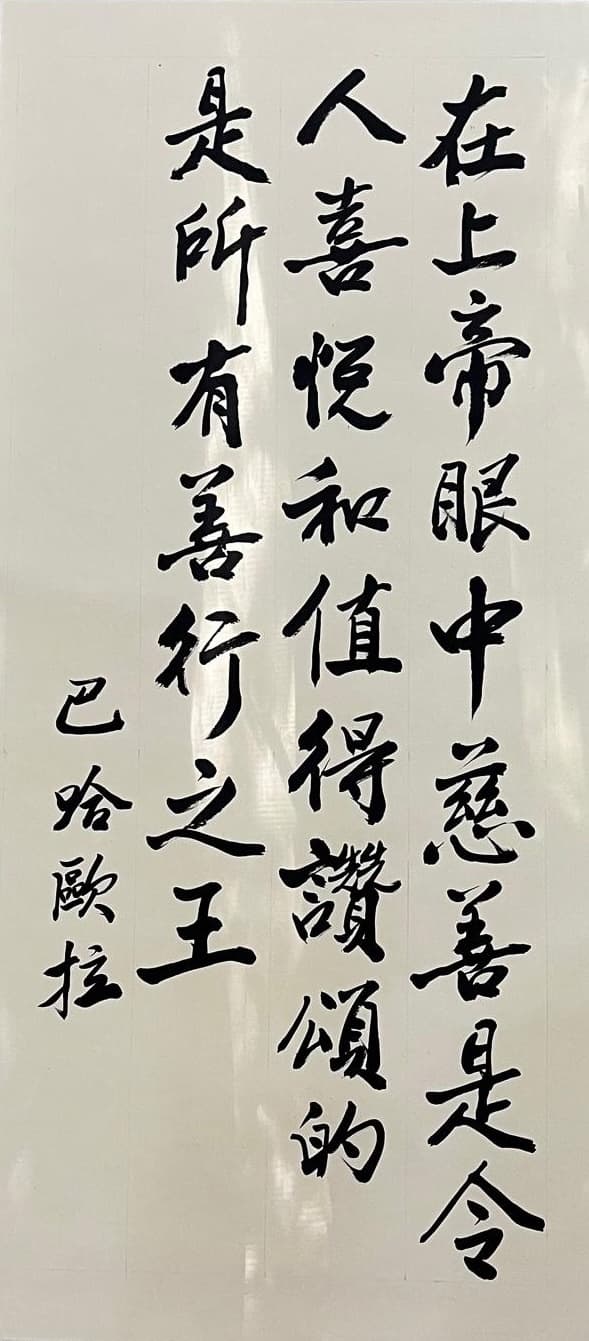 在上帝眼中慈善是令
人喜悅和值得讚頌的
是所有善行之王
巴哈歐拉